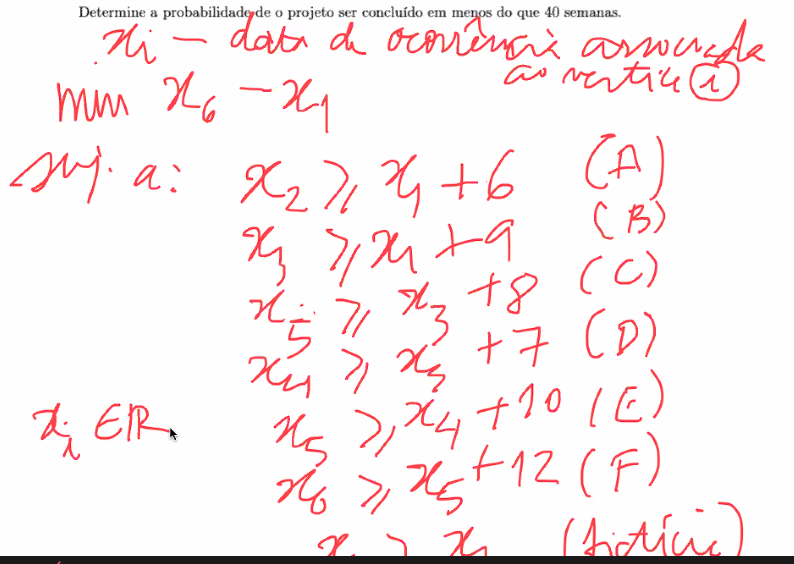 Determine a probabilidade de o projeto ser concluído em menos do que 40 semanas.
xi – data de ocorrência associada
ao vertice ①
min x6 – x1
suj. a: x2 ≥ x1 + 6 (A)
x3 ≥ x1 + 9 (B)
x5 ≥ x3 + 8 (C)
x4 ≥ x3 + 7 (D)
xi ∈ ℝ x5 ≥ x4 + 10 (E)
x6 ≥ x5 + 12 (F)
(fictícia)